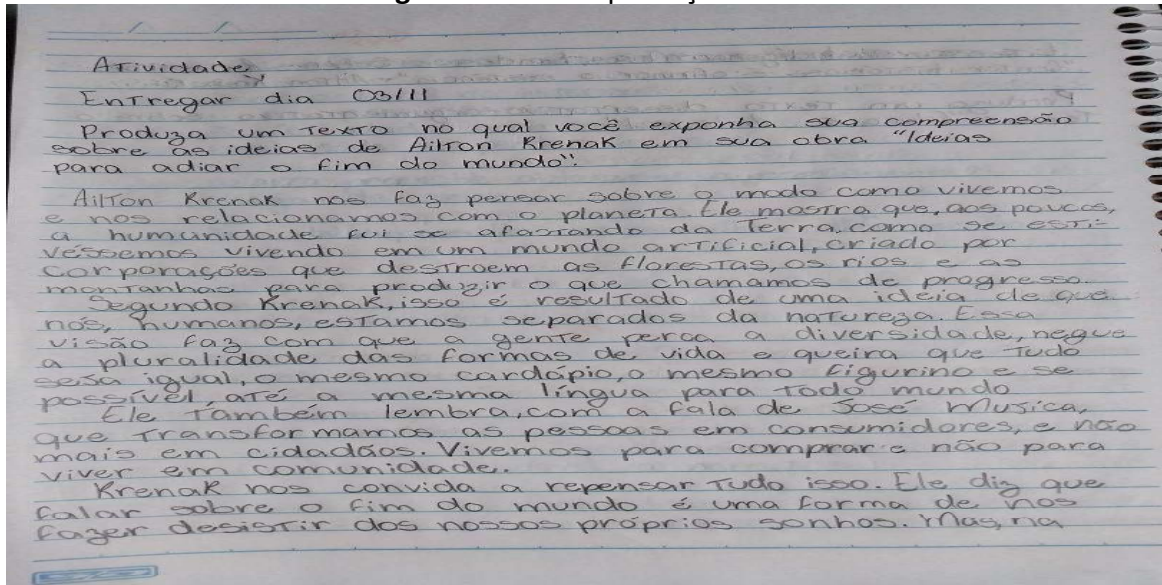 Atividade
Entregar dia 03/11
Produza um texto no qual você exponha sua compreensão
sobre as ideias de Ailton Krenak em sua obra "Ideias
para adiar o fim do mundo".
Ailton Krenak nos faz pensar sobre o modo como vivemos
e nos relacionamos com o planeta. Ele mostra que, aos poucos,
a humanidade foi se afastando da Terra, como se esti-
véssemos vivendo em um mundo artificial, criado por
corporações que destroem as florestas, os rios e as
montanhas para produzir o que chamamos de progresso.
Segundo Krenak, isso é resultado de uma ideia de que
nós, humanos, estamos separados da natureza. Essa
visão faz com que a gente perca a diversidade, negue
a pluralidade das formas de vida e queira que tudo
seja igual, o mesmo cardápio, o mesmo figurino e se
possível, até a mesma língua para todo mundo
Ele também lembra, com a fala de José Musica,
que transformamos as pessoas em consumidores, e não
mais em cidadãos. Vivemos para comprar e não para
viver em comunidade.
Krenak nos convida a repensar tudo isso. Ele diz que
falar sobre o fim do mundo é uma forma de nos
fazer desistir dos nossos próprios sonhos. Mas, na